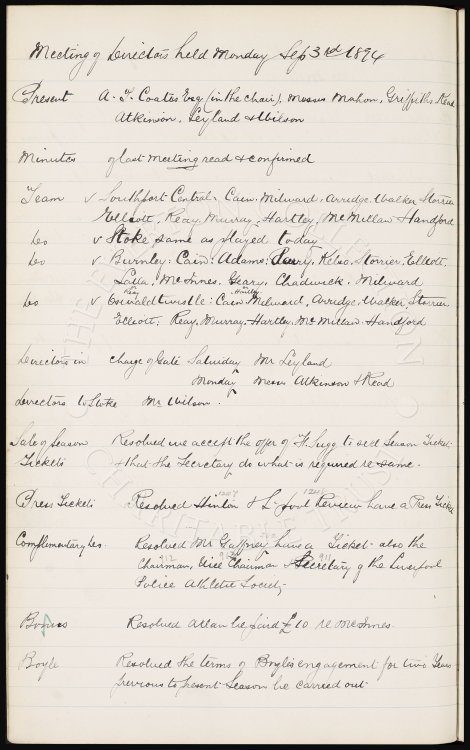 Meeting of Directors held Monday Sep 3rd 1894
Present A. T. Coates Esq (in the chair), Messrs Mahon, Griffiths Read
Atkinson, Leyland & Wilson
Minutes of last meeting read & confirmed
Team v Southport Central: Cain: Milward. Arridge. Walker Storrier
Elliott, Reay Murray. Hartley, McMillan Handford
do v Stoke same as played today
do v Burnley: Cain: Adams: Parry, Kelso, Storrier: Elliott,
Latta: McInnes. Geary. Chadwick. Milward
do v Oswaldtwistle: Cain: Milward, Arridge, Walker Storrier
Elliott: Reay, Murray. Hartley. McMillan. Handford
Directors in charge of Gate Saturday Mr Leyland
Monday Messrs Atkinson & Read
Directors to Stoke Mr Wilson.
Sale of Season Resolved we accept the offer of H. Sugg to sell Season Tickets
Tickets & that the Secretary do what is required re same.
Press Tickets Resolved Hinton & L'pool Review have a Press Ticket
Complimentary do. Resolved Mr Gaffney have a Ticket also the
912 911
Chairman, Vice Chairman & Secretary of the Liverpool
Police Athletic Society
Bonus Resolved Allan be paid £10 re McInnes.
Boyle Resolved the terms of Boyle's engagement for two Years
previous to present Season be carried out
THE EVERTON COLLECTION
CHARITABLE TRUST